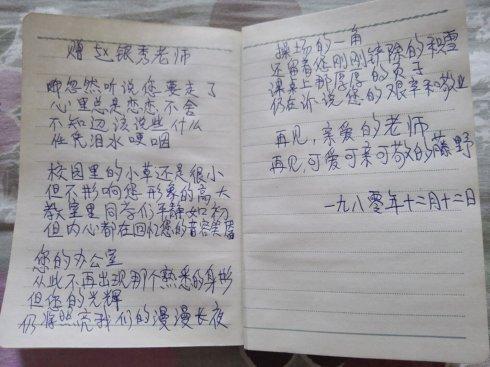 赠赵银秀老师
听忽然听说您要走了
心里总是恋恋不舍
不知迈该说些什么
任凭泪水哽咽
校园里的小草还是很小
但不影响您形象的高大
教室里同学们平静如初
但内心都在回忆您的音容笑靥
您的办公室
从此不再出现那个熟悉的身影
但您的光辉
仍将照亮我们的漫漫长夜
操场的一角
还留着您刚刚铲除的积雪
课桌上那厚厚的页子
仍在诉说您的艰辛和敬业
再见,亲爱的老师
再见,可爱可亲可敬的藤野
一九八零年十二月十二日